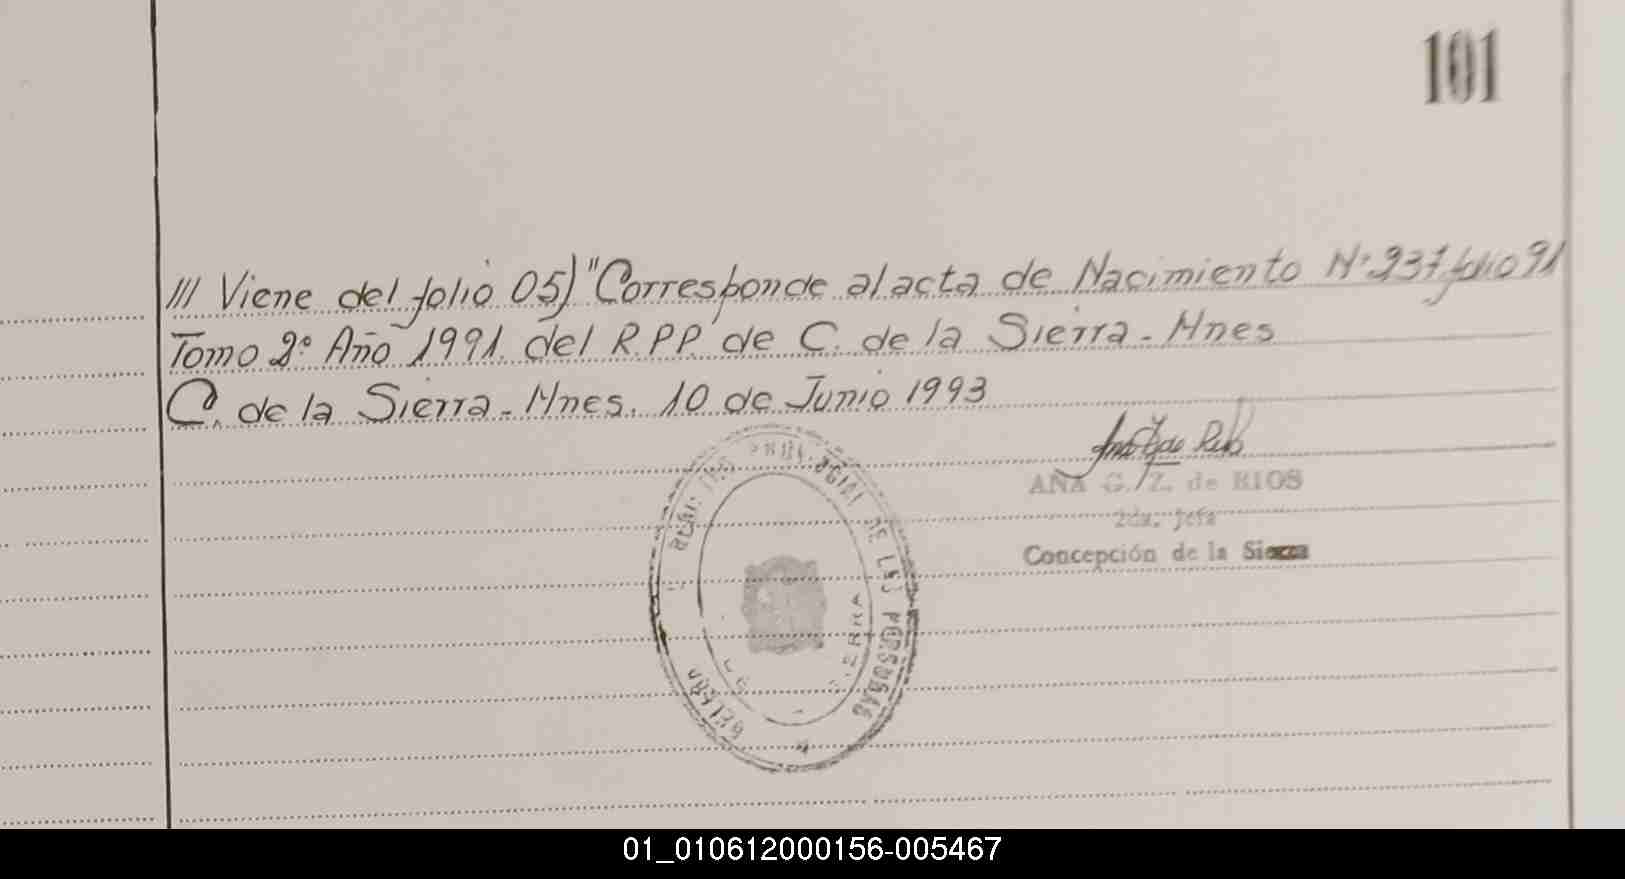 101
/// Viene del folio 05) "Corresponde al acta de Nacimiento Nº 237 folio 91
Tomo 2º Año 1991. del R.P.P. de C. de la Sierra - Mnes
C. de la Sierra - Mnes. 10 de Junio 1993
ANA G. Z. de RIOS
2da. Jefa
Concepción de la Sierra
DE LAS PERSONAS
01_010612000156-005467